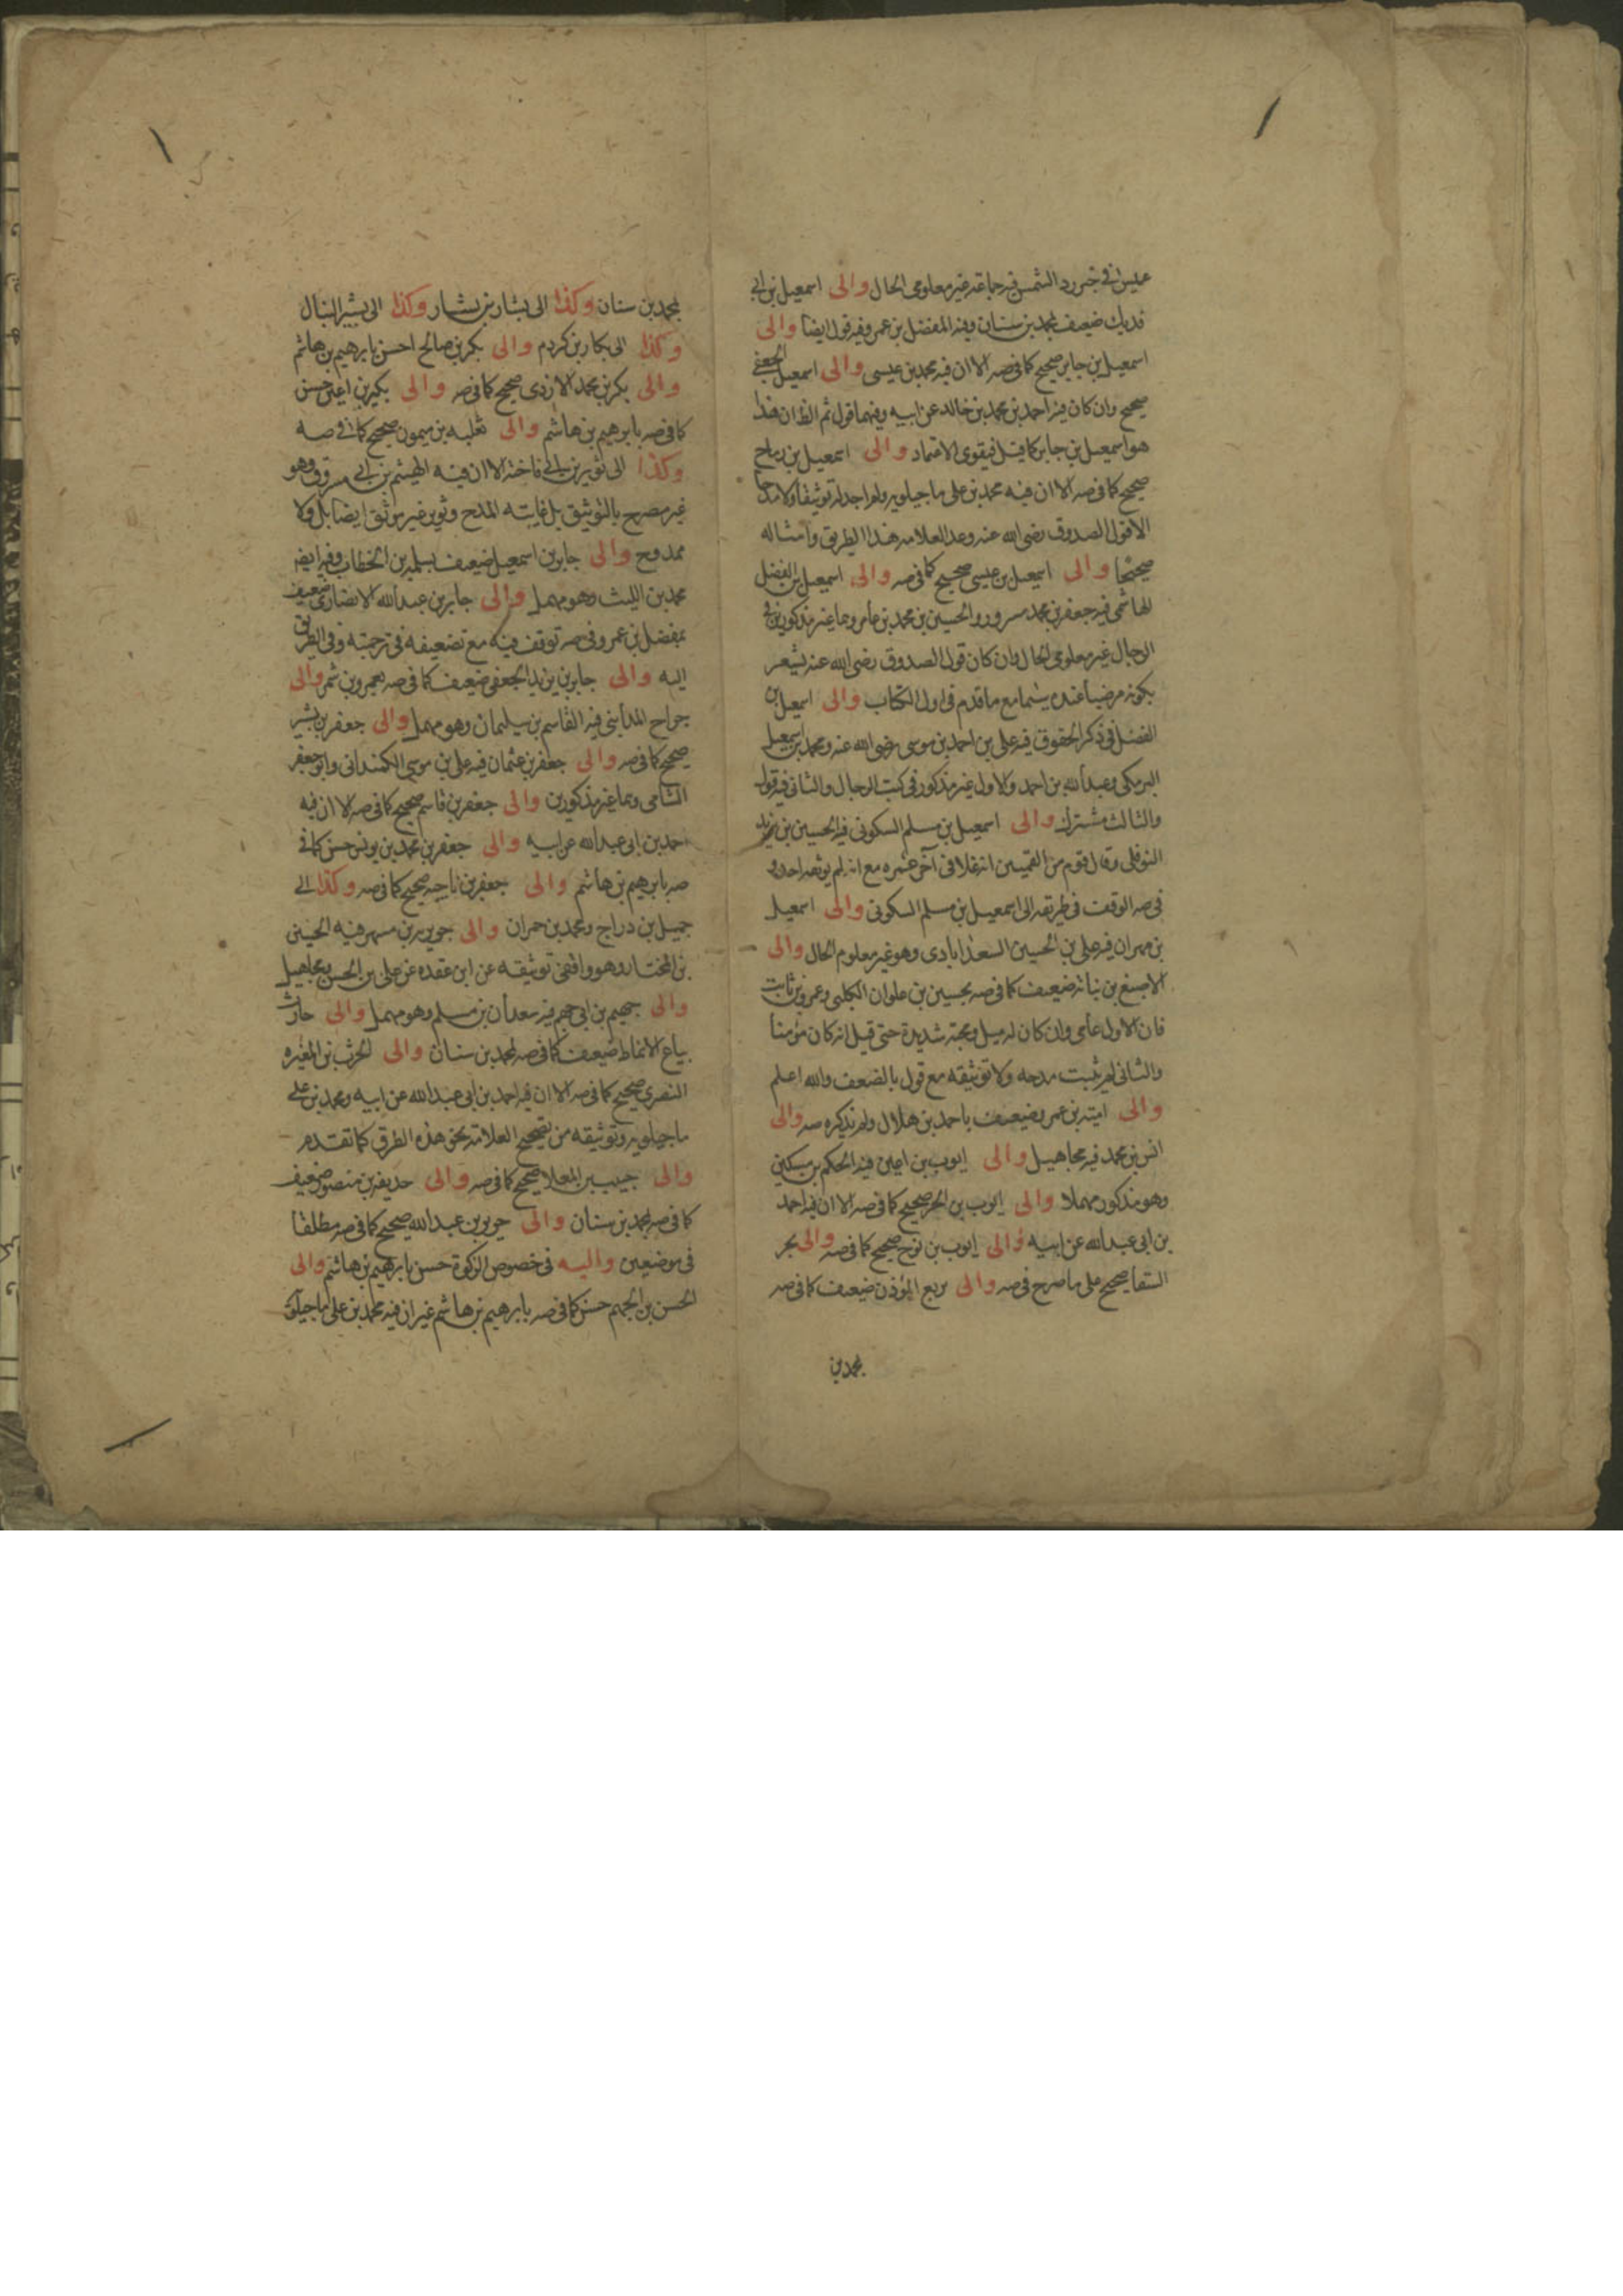 عميس في خبر رد الشمس فيه جماعة غير معلومي الحال والى اسمعيل بن ابي
فديك ضعيف بمحمد بن سنان وفيه المفضل بن عمر وفيه قول ايضا والى
اسمعيل بن جابر صحيح كما في صه الا ان فيه محمد بن عيسى والى اسمعيل الجعفي
صحيح وان كان فيه احمد بن محمد بن خالد عن ابيه وفيهما قول ثم الظ ان هذا
هو اسمعيل بن جابر كما قيل فيقوى الاعتماد والى اسمعيل بن رباح
صحيح كما في صه الا ان فيه محمد بن علي ماجيلويه ولم اجد له توثيقا ولا مدحا
الا قول الصدوق رضي الله عنه وعد العلامه هذا الطريق وامثاله
صحيحا والى اسمعيل بن عيسى صحيح كما في صه والى اسمعيل بن الفضل
الهاشمي فيه جعفر بن محمد مسرور والحسين بن محمد بن عامر وهما غير مذكورين في
الرجال غير معلومي الحال وان كان قول الصدوق رضي الله عنه يشعر
بكونه مرضيا عنده سيما مع ما قدم في اول الكتاب والى اسمعيل بن
الفضل في ذكر الحقوق فيه علي بن احمد بن موسى رضي الله عنه ومحمد بن اسمعيل
البرمكي وعبد الله بن احمد والاول غير مذكور في كتب الرجال والثاني فيه قول
والثالث مشترك والى اسمعيل بن مسلم السكوني فيه الحسين بن يزيد
النوفلي وقال قوم من القميين انه غلا في آخر عمره مع انه لم يوثقه احد و
في صه الوقف في طريقه الى اسمعيل بن مسلم السكوني والى اسمعيل
بن مهران فيه علي بن الحسين السعدابادي وهو غير معلوم الحال والى
الاصبغ بن نباته ضعيف كما في صه بحسين بن علوان الكلبي وعمرو بن ثابت
فان الاول عامي وان كان له ميل ومحبة شديدة حتى قيل انه كان مؤمنا
والثاني لم يثبت مدحه ولا توثيقه مع قول بالضعف والله اعلم
والى امية بن عمر ضعيف باحمد بن هلال ولم يذكره صه والى
انس بن محمد فيه مجاهيل والى ايوب بن اعين فيه الحكم بن مسكين
وهو مذكور مهملا والى ايوب بن الحر صحيح كما في صه الا ان فيه احمد
بن ابي عبد الله عن ابيه والى ايوب بن نوح صحيح كما في صه والى بحر
السقا صحيح على ما صرح في صه والى بزيع المؤذن ضعيف كما في صه
بمحمد بن
بمحمد بن سنان وكذا الى بشار بن بشار وكذا الى بشير النبال
وكذا الى بكار بن كردم والى بكر بن صالح احسن بابرهيم بن هاشم
والى بكر بن محمد الازدي صحيح كما في صه والى بكير بن اعين حسن
كما في صه بابرهيم بن هاشم والى ثعلبه بن ميمون صحيح كما في صه
وكذا الى ثوير بن ابي فاخته الا ان فيه الهيثم بن ابي مسروق وهو
غير مصرح بالتوثيق بل غايته المدح وثوير غير موثق ايضا بل ولا
ممدوح والى جابر بن اسمعيل ضعيف بسلمة بن الخطاب وفيه ايضا
محمد بن الليث وهو مهمل والى جابر بن عبد الله الانصاري ضعيف
بمفضل بن عمر وفي صه توقف فيه مع تضعيفه في ترجمته وفي الطريق
اليه والى جابر بن يزيد الجعفي ضعيف كما في صه بعمرو بن شمر والى
جراح المدايني فيه القاسم بن سليمان وهو مهمل والى جعفر بن بشير
صحيح كما في صه والى جعفر بن عثمان فيه علي بن موسى الكمنداني وابو جعفر
الشامي وهما غير مذكورين والى جعفر بن قاسم صحيح كما في صه الا ان فيه
احمد بن ابي عبد الله عن ابيه والى جعفر بن محمد بن يونس حسن كما في
صه بابرهيم بن هاشم والى جعفر بن ناجيه صحيح كما في صه وكذا الى
جميل بن دراج ومحمد بن حمران والى جويريه بن مسهر فيه الحسين
بن المختار وهو واقفي توثيقه عن ابن عقده عن علي بن الحسن ومجاهيل
والى جهيم بن ابي جهم فيه سعدان بن مسلم وهو مهمل والى حارث
بياع الانماط ضعيف كما في صه بمحمد بن سنان والى الحرث بن المغيره
النصري صحيح كما في صه الا ان فيه احمد بن ابي عبد الله عن ابيه ومحمد بن علي
ماجيلويه وتوثيقه من تصحيح العلامة نحو هذه الطرق كما تقدم
والى حبيب بن المعلا صحيح كما في صه والى حذيفه بن منصور ضعيف
كما في صه بمحمد بن سنان والى حريز بن عبد الله صحيح كما في صه مطلقا
في موضعين واليه في خصوص الزكوة حسن بابرهيم بن هاشم والى
الحسن بن الجهم حسن كما في صه بابرهيم بن هاشم غير ان فيه محمد بن علي ماجيلويه